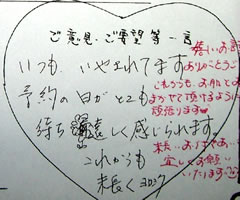 ご意見・ご要望等一言
いつも、いやされてます
予約の日がとても
待ち遠しく感じられます。
これからも
末長くヨロシク
ありがとうご
これからも、お肌とお
まかせて頂けるように
頑張ります
末長いおつきあい
宜しくお願い
いたします